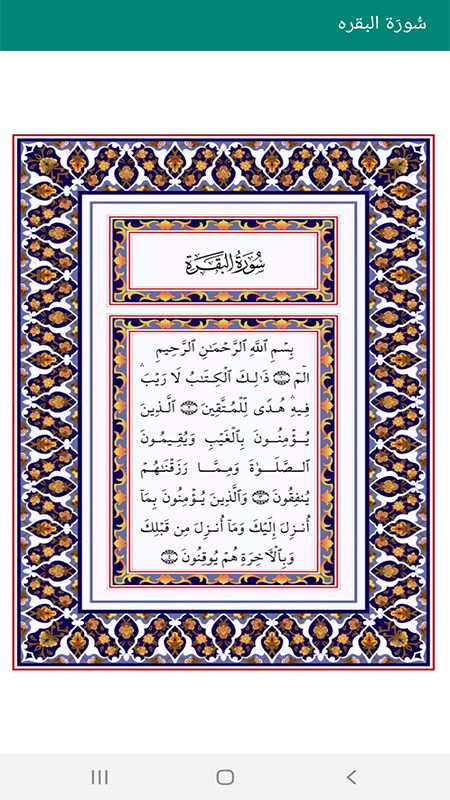 سُورَة البقره
سُورَةُ البَقَرَةِ
بِسْمِ اللَّهِ الرَّحْمَـٰنِ الرَّحِيمِ
الٓمٓ ۝١ ذَٰلِكَ الْكِتَـٰبُ لَا رَيْبَ ۛ
فِيهِ ۛ هُدًى لِّلْمُتَّقِينَ ۝٢ الَّذِينَ
يُؤْمِنُـونَ بِالْغَيْبِ وَيُقِيمُـونَ
الصَّلَـوٰةَ وَمِمَّـا رَزَقْنَـٰهُـمْ
يُنفِقُونَ ۝٣ وَالَّذِينَ يُؤْمِنُونَ بِمَآ
أُنزِلَ إِلَيْكَ وَمَآ أُنزِلَ مِن قَبْلِكَ
وَبِالْـَٔاخِرَةِ هُمْ يُوقِنُونَ ۝٤